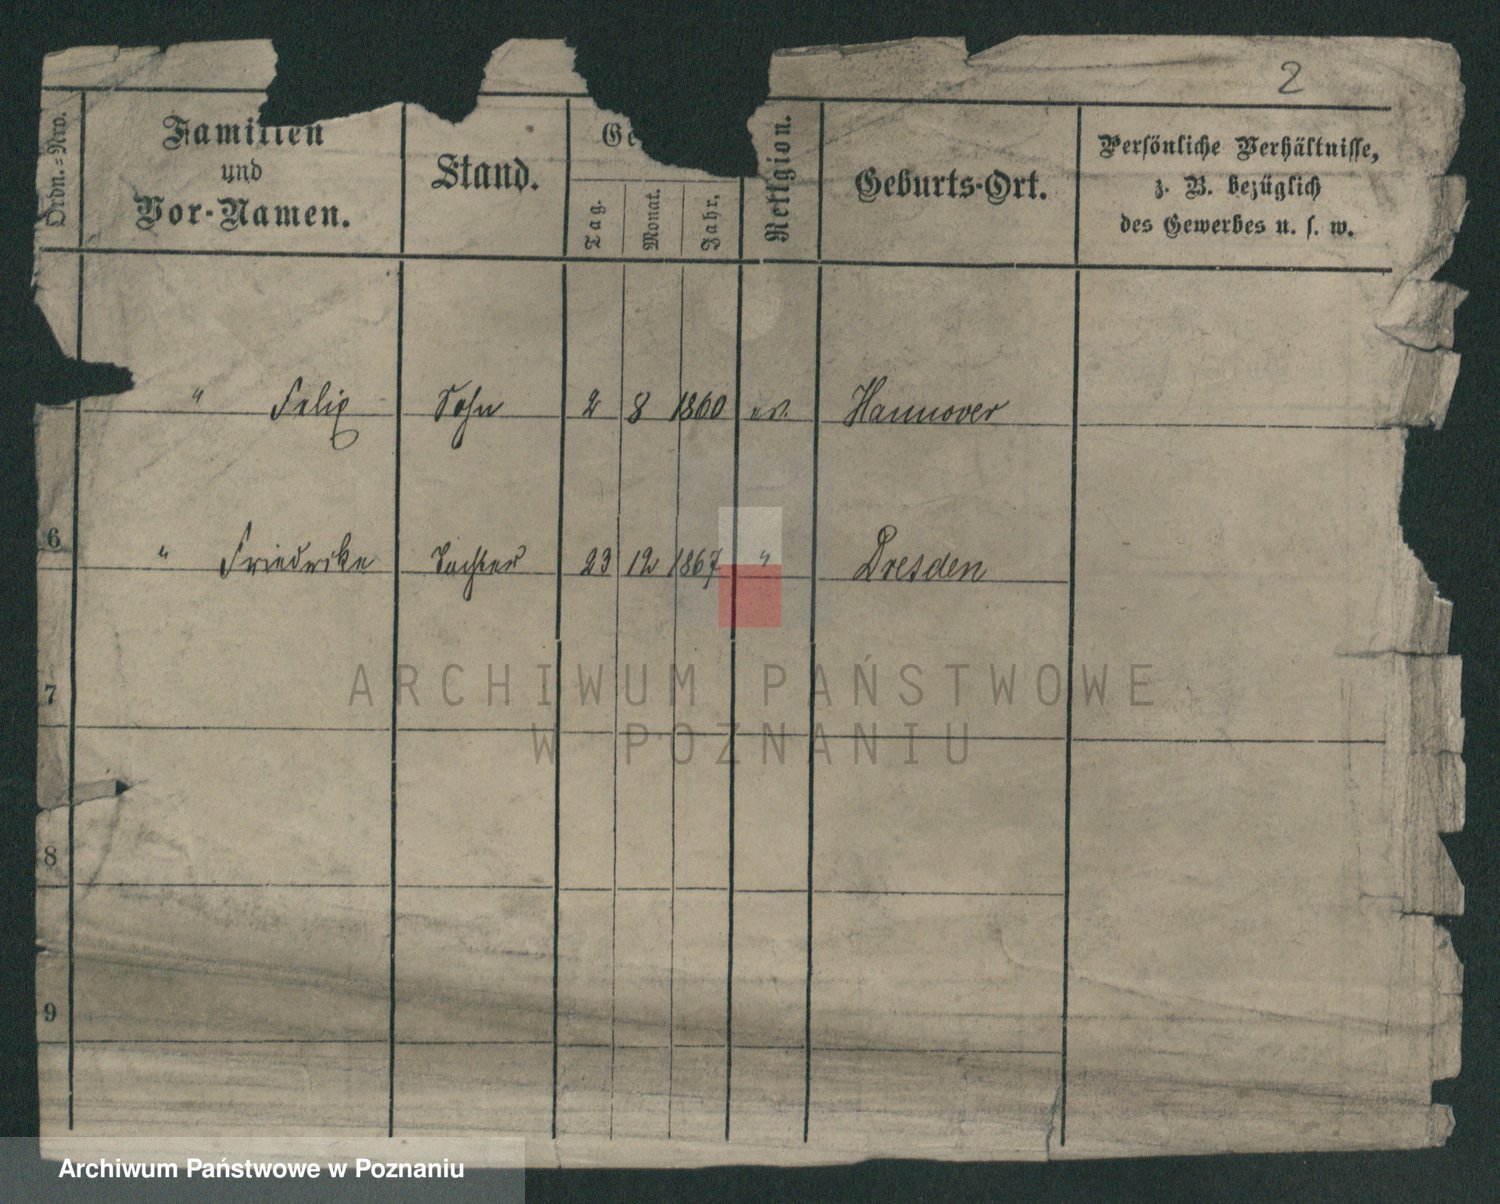 2
Ordn.=Nro.
Familien
und
Vor-Namen.
Stand.
Ge
Tag.
Monat.
Jahr.
Religion.
Geburts-Ort.
Persönliche Verhältnisse,
z. B. bezüglich
des Gewerbes u. s. w.
" Felix Sohn 2 8 1860 ev. Hannover
6 " Friedrike Tochter 23 12 1867 " Dresden
7
ARCHIWUM PAŃSTWOWE
W POZNANIU
8
9
Archiwum Państwowe w Poznaniu